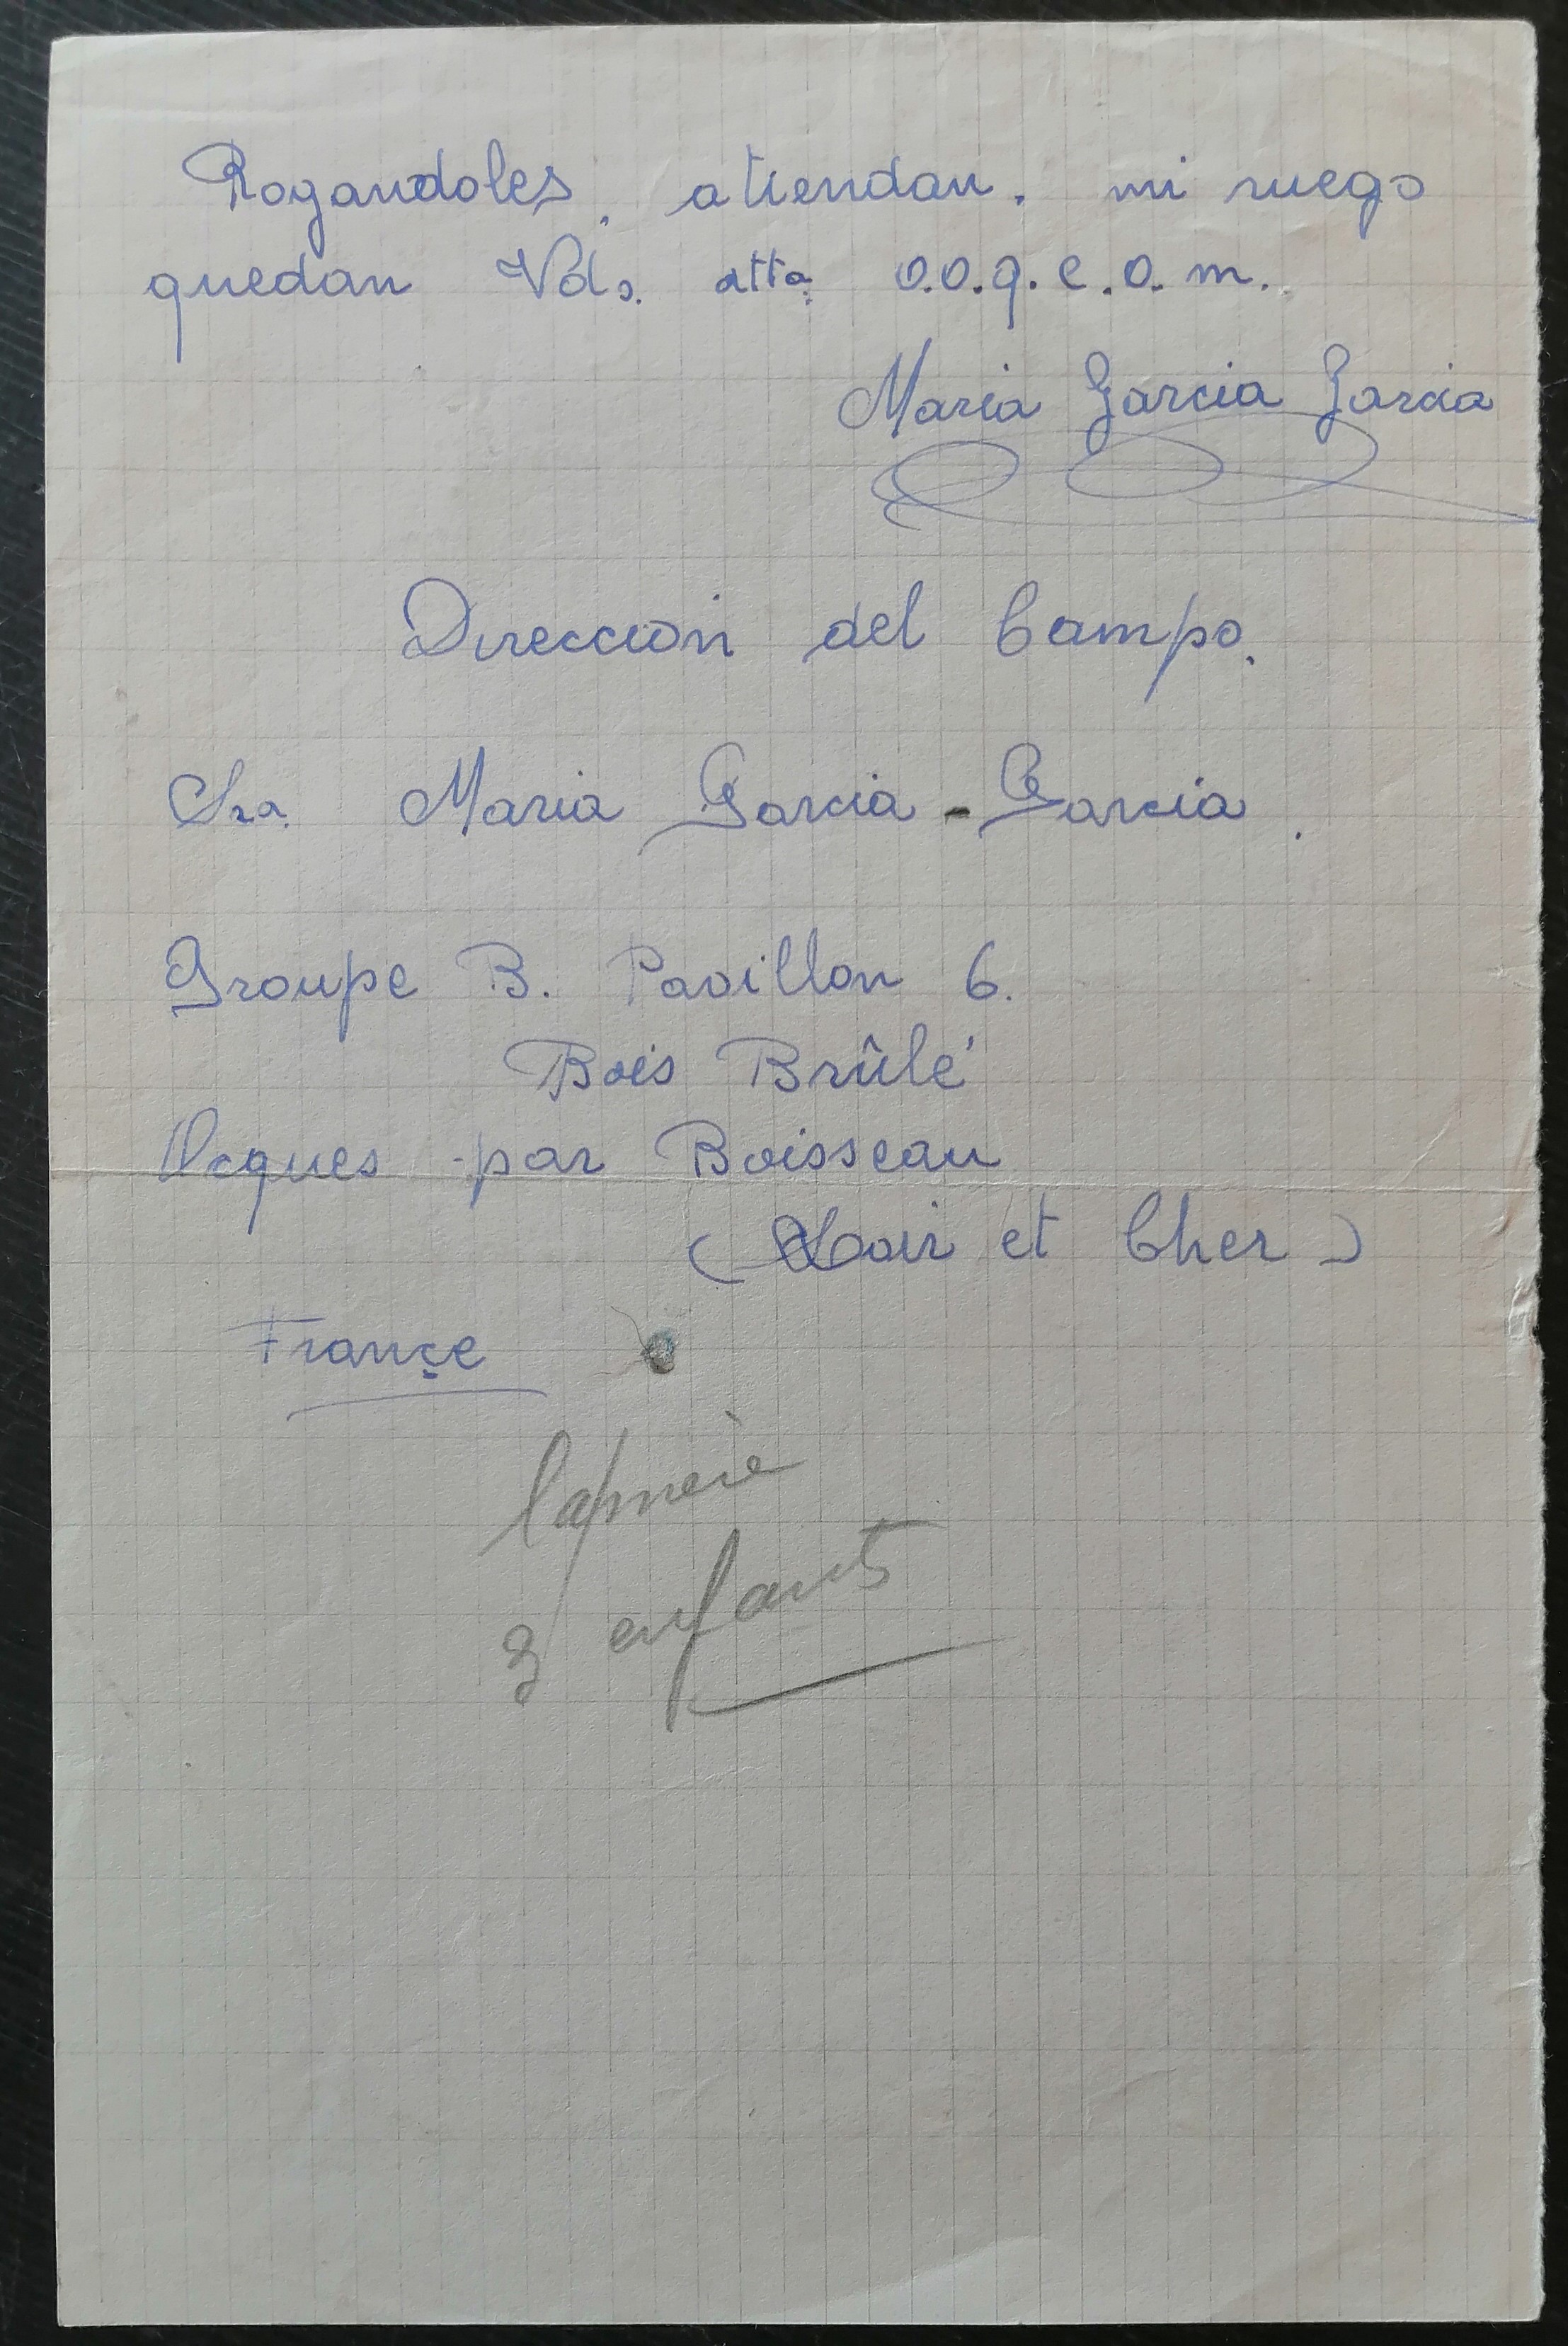 Rogandoles, atiendan. mi ruego
quedan Vds. atta. s.s.q.e.s.m.
Maria Garcia Garcia
Direccion del Campo.
Sra. Maria Garcia - Garcia.
Groupe B. Pavillon 6.
Bois Brûlé
Ocques par Boisseau
(Loir et Cher)
Françe
la mère
3 enfants